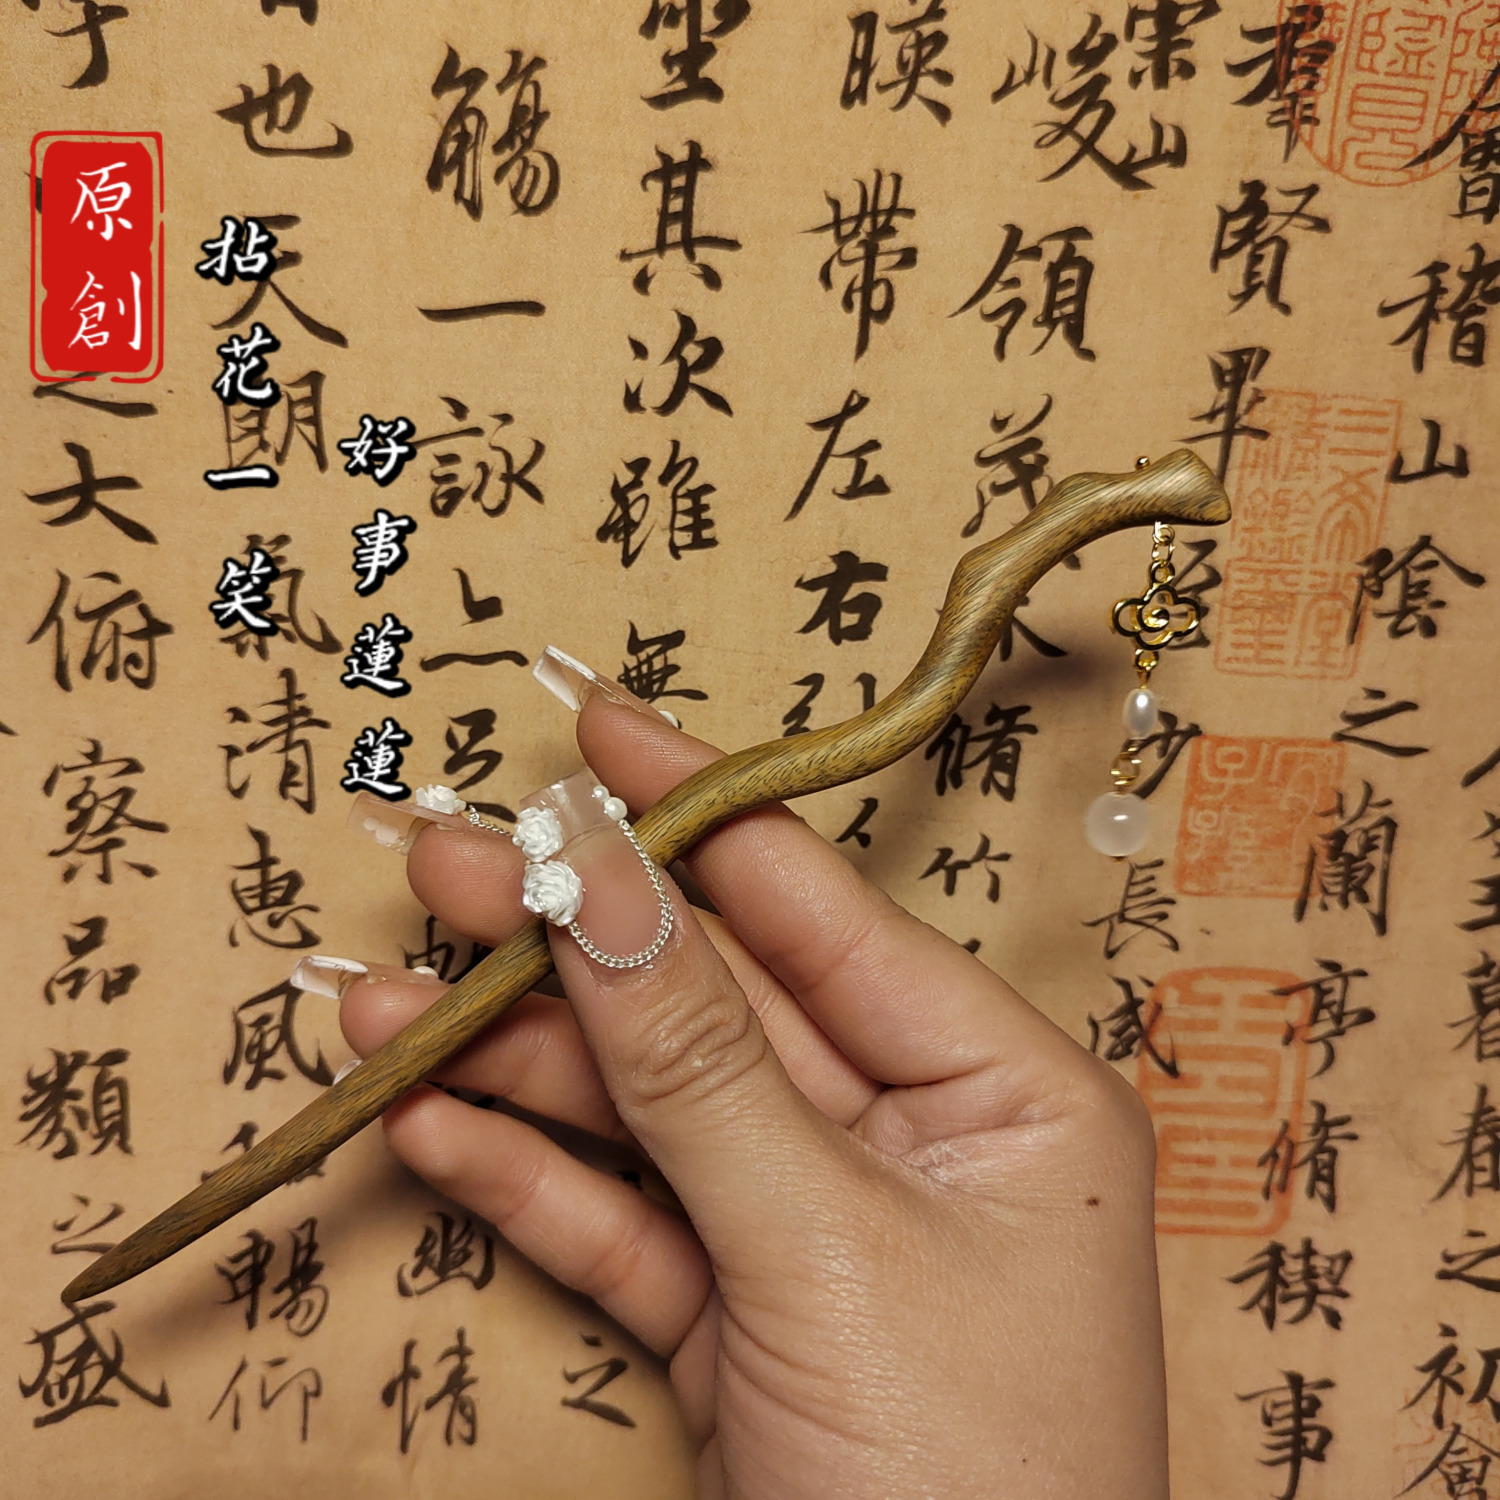 原創
拈花一笑
好事蓮蓮
暮春之初會
會稽山陰之蘭亭脩稧事
羣賢畢至少長咸
崇山峻領茂林脩竹
暎帶左右引
坐其次雖無
之
觴一詠亦足
幽情
也天朗氣清惠風和暢仰
之大俯察品類之盛